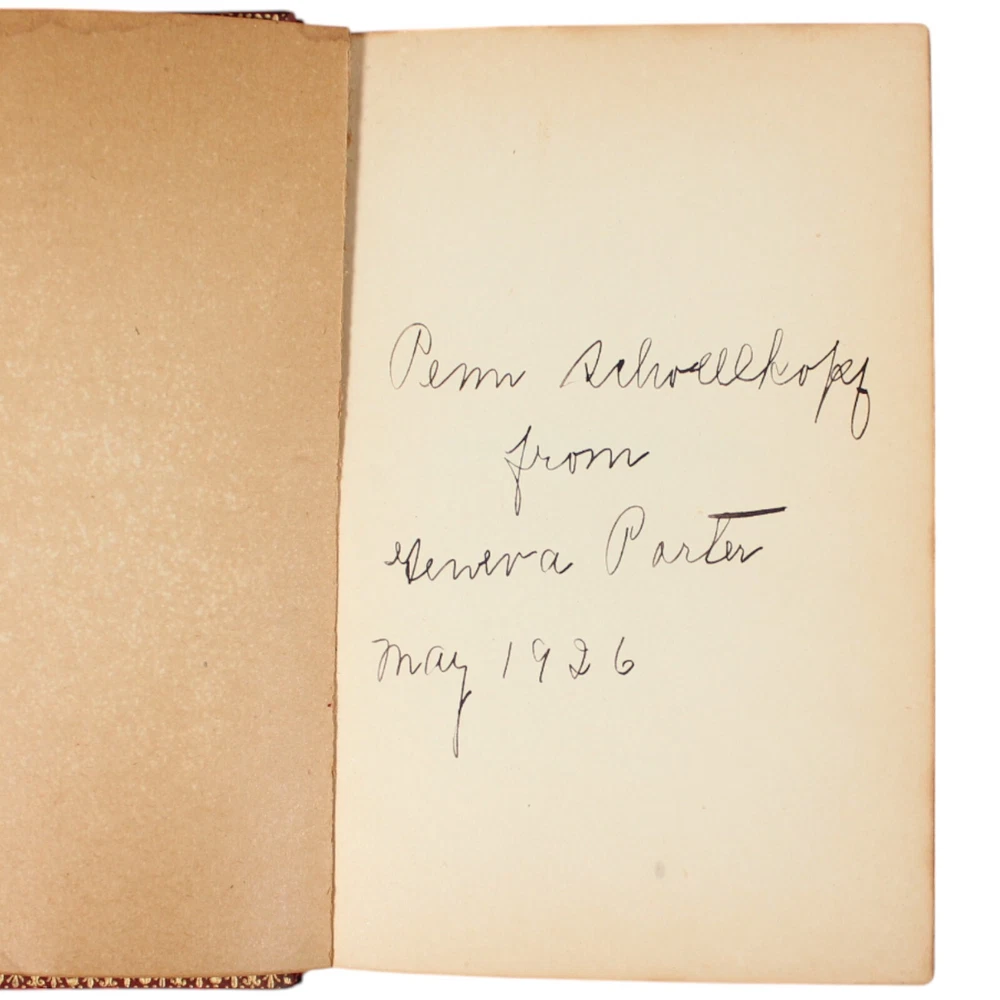 Penn Schoellkopf
from
Geneva Porter
May 1926